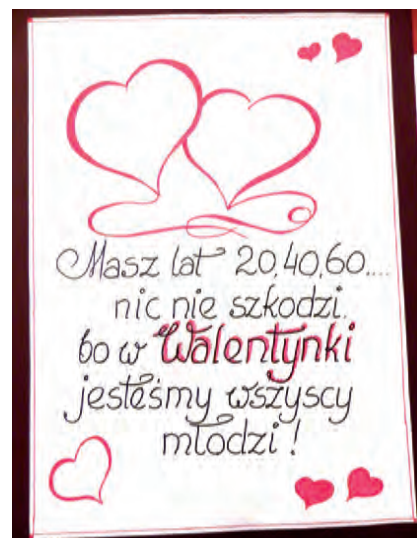 Masz lat 20,40,60....
nic nie szkodzi.
bo w Walentynki
jesteśmy wszyscy
młodzi!